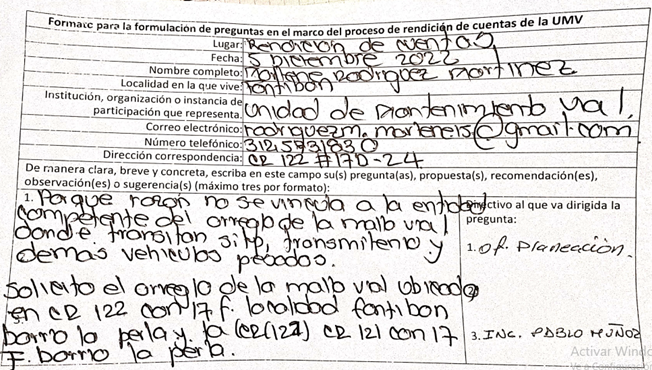 Formato para la formulación de preguntas en el marco del proceso de rendición de cuentas de la UMV
Lugar: Rendicion de cuentas
Fecha: 5 Diciembre 2022
Nombre completo: Marlene Rodriguez Martinez
Localidad en la que vive: Fontibon
Institución, organización o instancia de participación que representa: Unidad de Mantenimiento Vial.
Correo electrónico: rodriguezm.marleneis@gmail.com
Número telefónico: 3125731830
Dirección correspondencia: CR 122 #17D-24
De manera clara, breve y concreta, escriba en este campo su(s) pregunta(as), propuesta(s), recomendación(es),
observación(es) o sugerencia(s) (máximo tres por formato):
Directivo al que va dirigida la pregunta:
1. Porque razon no se vincula a la entidad
competente del arreglo de la malla vial
donde transitan sitp, transmilenio y
demas vehiculos pesados.
Solicito el arreglo de la malla vial ubicada
en CR 122 con 17 f. localidad fontibon
barrio la perla y la (CR(122) CR 121 con 17
F. barrio la perla.
1. Of. Planeación.
3. ING. PABLO MUÑOZ
Activar Windo